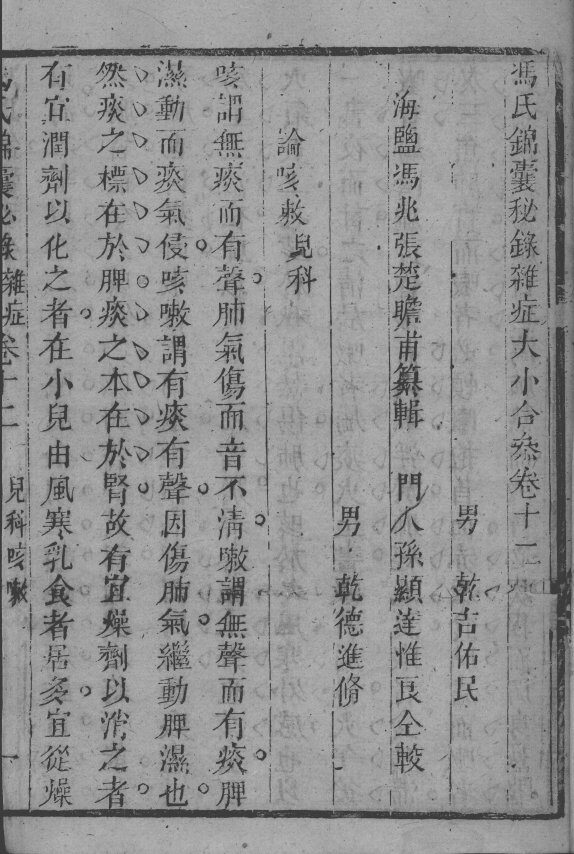 馮氏錦囊秘錄雜症大小合叅卷十二
男 乾吉佑民
海鹽馮兆張楚瞻甫纂輯 門人孫顯達惟良仝較
男 乾德進脩
論咳嗽兒科
咳謂無痰而有聲肺氣傷而音不清嗽謂無聲而有痰脾
濕動而痰氣侵咳嗽謂有痰有聲因傷肺氣繼動脾濕也
然痰之標在於脾痰之本在於腎故有宜燥劑以消之者
有宜潤劑以化之者在小兒由風寒乳食者居多宜從燥
馮氏錦囊秘錄雜症卷十二 兒科咳嗽 一